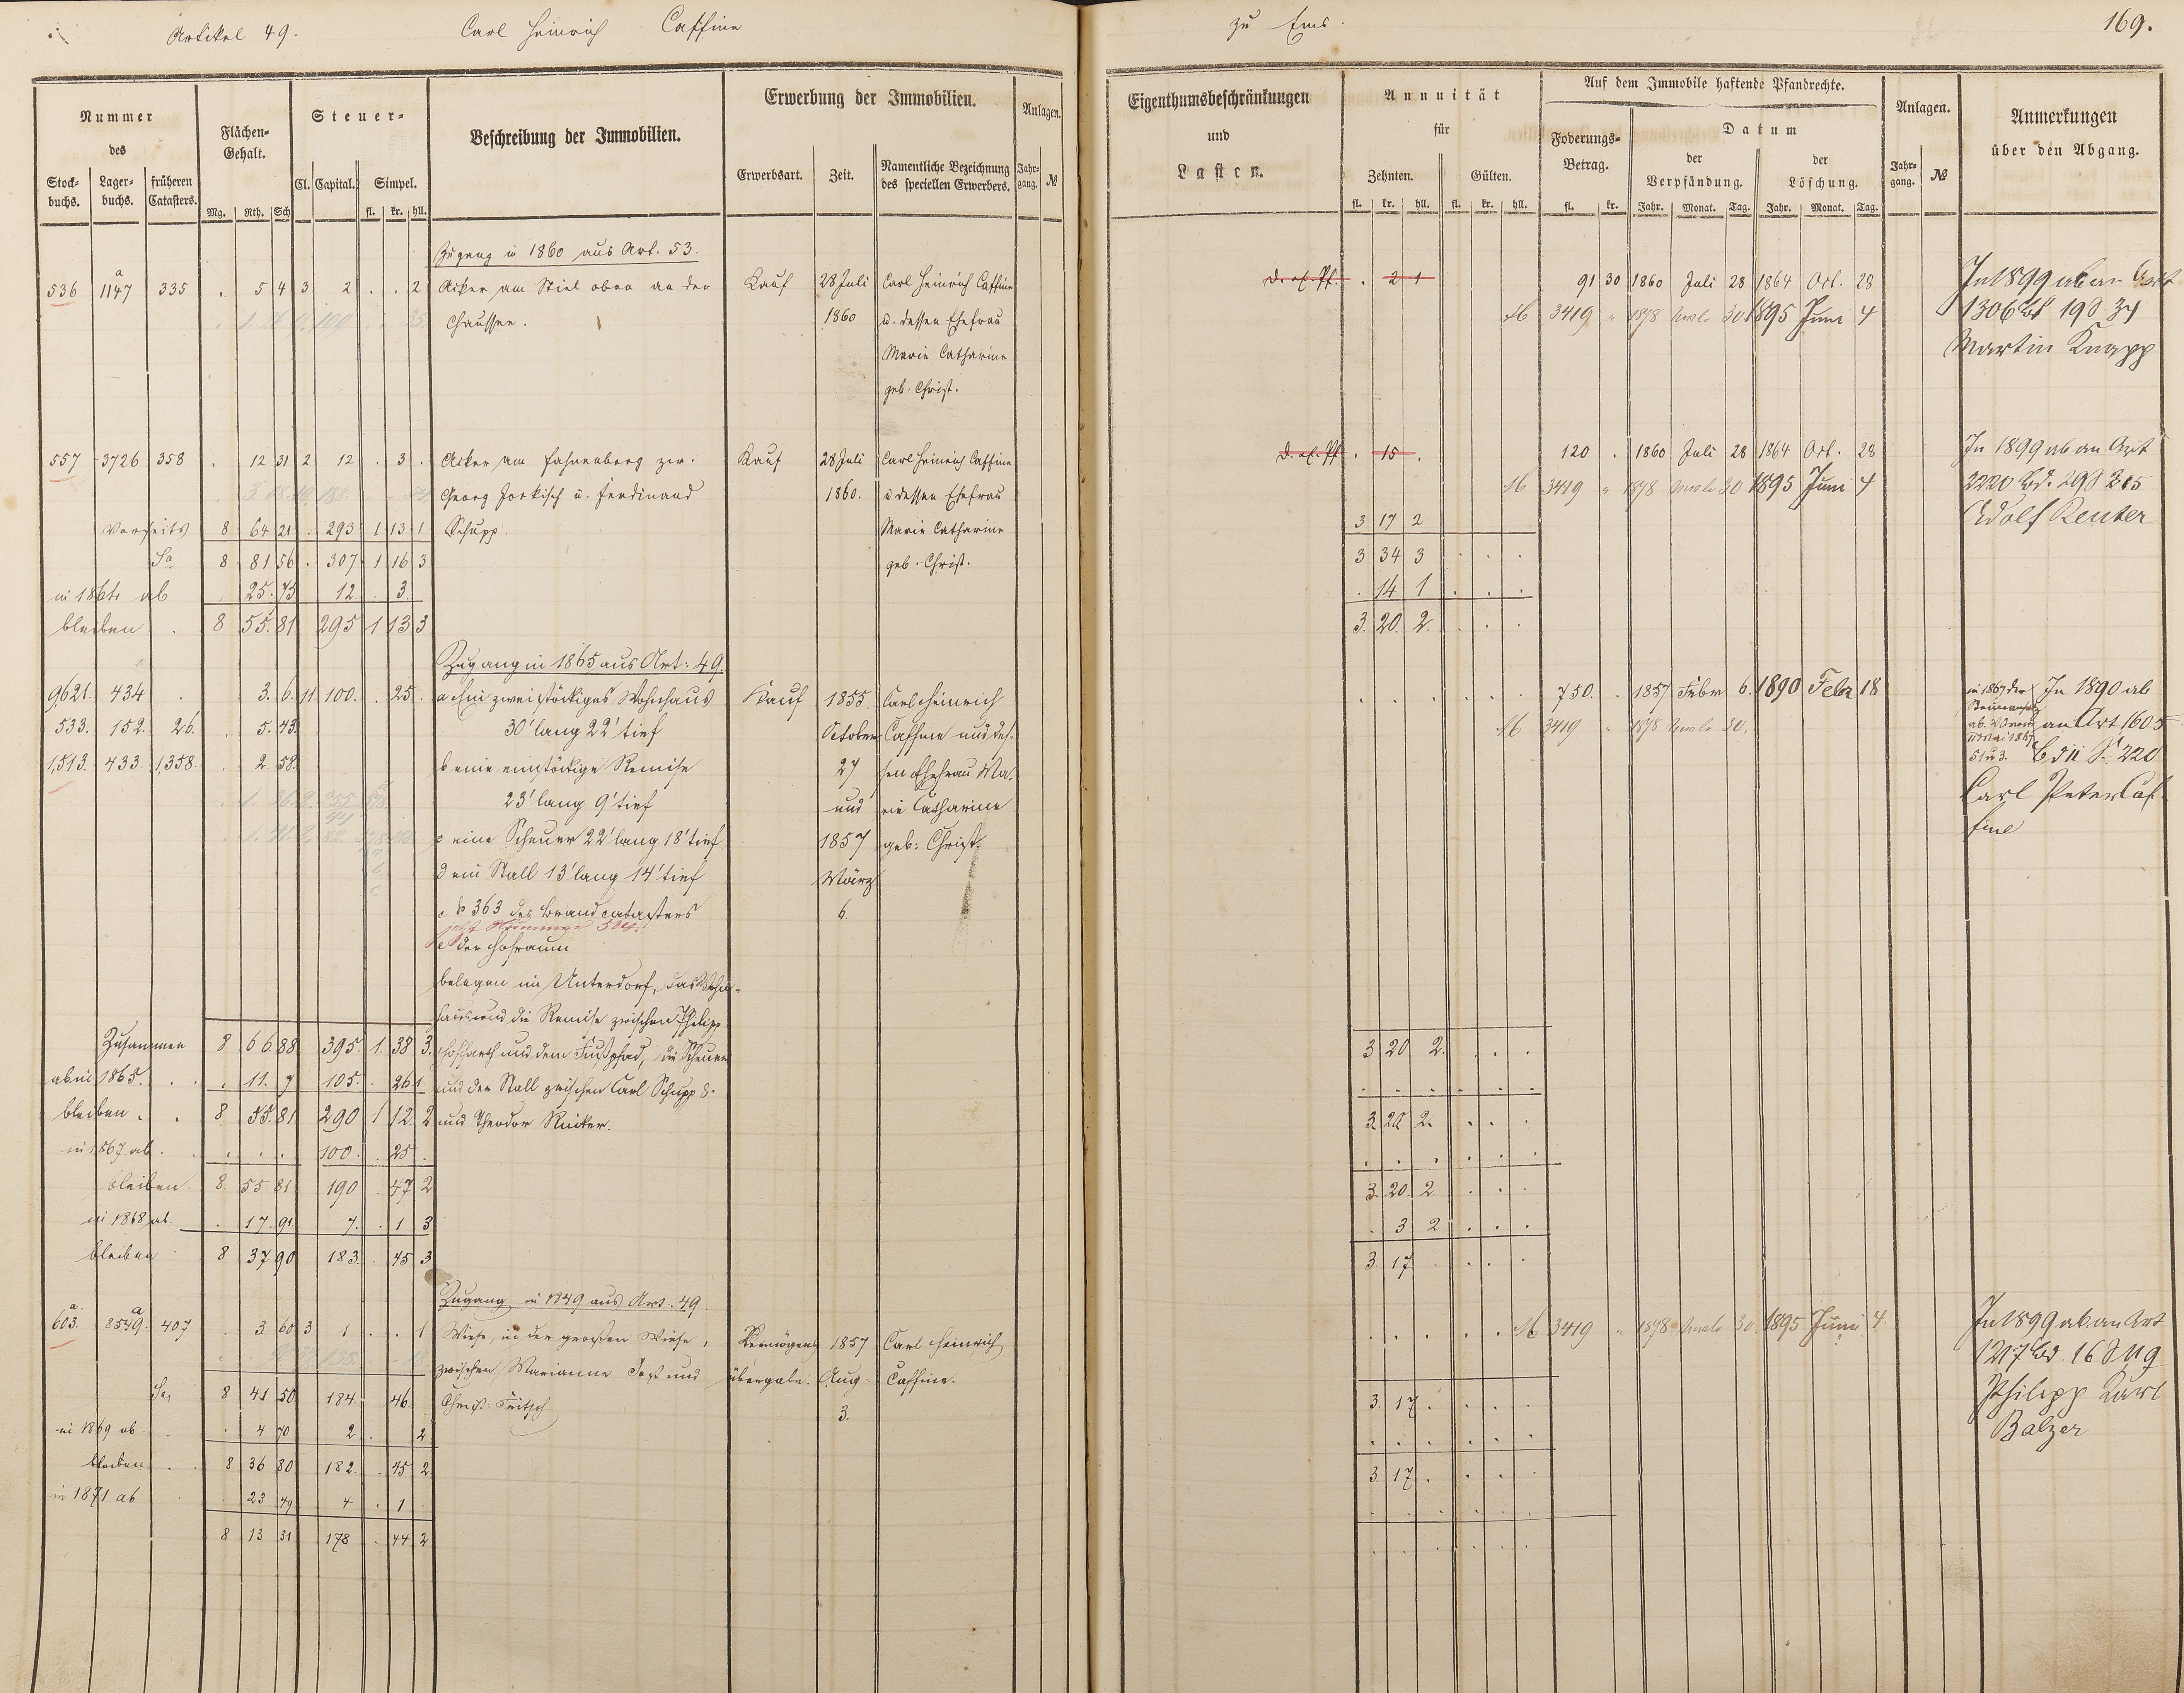 Artikel 49. Carl Heinrich Caffine
zu Ems. 169.
Nummer des
Stock-buchs. Lager-buchs. früheren Catasters.
Flächen-Gehalt.
Mg. Rth. Sch
Steuer-
Cl. Capital. Simpel.
fl. kr. hll.
Beschreibung der Immobilien.
Erwerbung der Immobilien.
Erwerbsart. Zeit. Namentliche Bezeichnung des speciellen Erwerbers.
Anlagen.
Jahr-gang. №
Eigenthumsbeschränkungen
und
Lasten.
Annuität
für
Zehnten. Gülten.
fl. kr. hll. fl. kr. hll.
Auf dem Immobile haftende Pfandrechte.
Foderungs-Betrag.
fl. kr.
Datum
der Verpfändung. der Löschung.
Jahr. Monat. Tag. Jahr. Monat. Tag.
Anlagen.
Jahr-gang. №
Anmerkungen
über den Abgang.
Zugang in 1860 aus Art. 53.
536 1147 a 335 . 5 4 3 2 . . 2 Acker am Stiel oben an der Kauf 28 Juli Carl Heinrich Caffine
Chaussee. 1860 u. dessen Ehefrau
Marie Catharine
geb. Christ.
. 2 1 91 30 1860 Juli 28 1864 Oct. 28 In 1899 ab an Art
3419 " 1878 30 1895 Juni 4 1306 Bd 19 S 34
Martin Knapp
557 3726 358 . 12 31 2 12 . 3 . Acker am Fahnenberg zw. Kauf 28 Juli Carl Heinrich Caffine
Georg Jorkisch u. Ferdinand 1860. u dessen Ehefrau
Vorseits 8 64 21 . 293 1 13 1 Schupp. Marie Catharine
Sa 8 81 56 . 307 1 16 3 geb. Christ.
in 1864 ab . 25. 75 12. . 3.
bleiben . 8 55. 81 295 1 13 3
. 15 . 120 . 1860 Juli 28 1864 Oct. 28 In 1899 ab an Art
3419 " 1878 30 1895 Juni 4 2220 Bd. 29 S 215
3 17 2 Adolf Reuter
3 34 3 . . .
. 14 1 . . .
3. 20. 2. . . .
Zugang in 1865 aus Art: 49.
9,621. 434 . 3. 6. 11 100. . 25. a ein zweistöckiges Wohnhaus Kauf 1855. Carl Heinrich
533. 152. 26. . 5. 43. 30' lang 22' tief October Caffine und des-
1,513. 433. 1,358. . 2. 58. b eine einstöckige Remise 27 sen Ehefrau Ma-
23' lang 9' tief und rie Catharine
c eine Scheuer 22' lang 18' tief 1857 geb: Christ.
d ein Stall 13' lang 14' tief März
№ 363 des Brandcatasters 6.
jetzt Nummer 504.
e der Hofraum
belegen im Unterdorf, das Wohn-
haus und die Remise zwischen Philipp
750. . 1857 Febr 6. 1890 Febr 18 In 1890 ab
3419 " 1878 30. an Art 1605
Bd 11 S. 220
Carl Peter Caf-
fine
Zusammen 8 66 88 395. 1. 38 3. Hofharth und dem Fußpfad, die Scheuer
ab in 1865. . . . 11. 7 105. . 26 1 und der Stall zwischen Carl Schupp 8.
bleiben . . 8 55. 81. 290 1 12. 2 und Theodor Rücker.
in 1867 ab . . . . . 100. . 25 .
bleiben. 8. 55 81 190 . 47 2
in 1868 ab. . 17. 91. 7. . 1 3
bleiben . 8 37 90 183. . 45 3
3 20 2. . . .
. . . . . .
3. 20. 2. . . .
. . . . . .
3. 20. 2. . . .
. 3 2 . . .
3. 17 . . . .
Zugang in 1849 aus Art. 49.
603. a 8549. a 407 . 3 60 3 1 . . 1 Wiese, in der großen Wiese, Vermögens 1857 Carl Heinrich
zwischen Marianne Jost und übergabe. Aug. Caffine.
Sa 8 41 50 184. . 46. Christ. Fritsch 3.
in 1869 ab . . 4 70 2. . 2
bleiben . . 8 36 80 182. . 45 2
in 1871 ab . . 23 49 4 . 1 .
8 13 31 178 . 44 2
3419 " 1878 30. 1895 Juni 4. In 1899 ab an Art
1217 Bd. 16 S 119
3. 17. . . . Philipp Karl
. . . . . . Balzer
3. 17. . . .